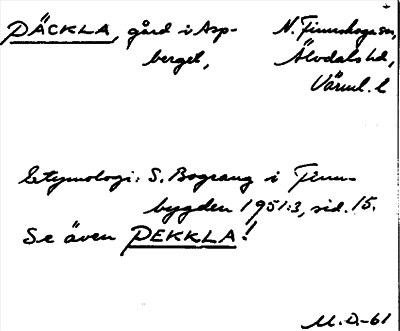 DÄCKLA, gård i Asp- N. Finnskoga sn,
berget, Älvdals hd,
Värml. l
Etymologi: S. Bograng i Finn-
bygden 1951:3, sid. 15.
Se även DEKKLA!
M.D.-61